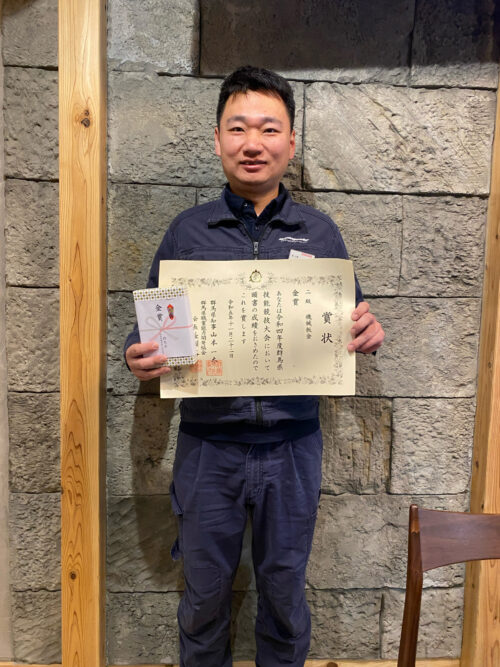 賞状
二級 機械板金
金賞
あなたは令和四年度群馬県
技能競技大会において
頭書の成績をおさめたので
これを賞します
令和五年十一月二十二日
群馬県知事 山本 一太
群馬県職業能力開発協会
会長
金賞